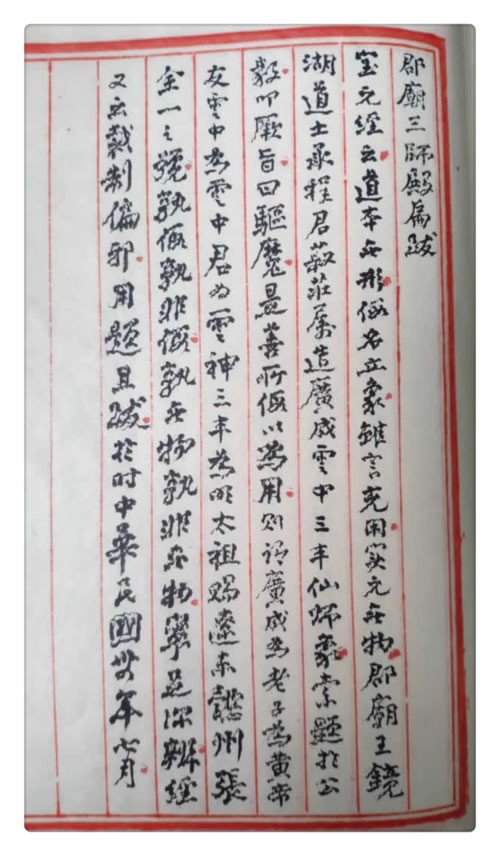 郡廟三師殿扁跋
宝元經云道本無形假名立象雖言克困實元無物郡廟王鏡
湖道士承程君菽莊属造廣成雲中三丰仙师象索題於公
毅叩厥旨曰驅魔是善所假以為用则謂廣成為老子為黄帝
友雲中為雲中君为雲神三丰為明太祖賜遼東懿州張
全一之號孰假孰非假孰無物孰非無物畢足深辨經
又云裁制偏邪用題且跋於时中華民國卅年七月